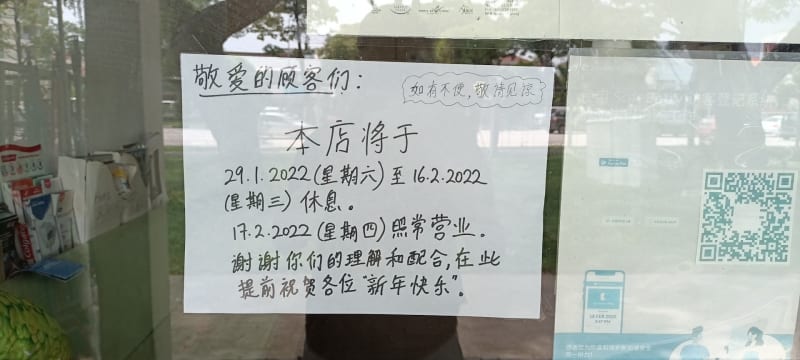 敬爱的顾客们:
如有不便,敬请见谅
本店将于
29.1.2022(星期六)至16.2.2022
(星期三)休息。
17.2.2022(星期四)照常营业。
谢谢你们的理解和配合,在此
提前祝贺各位"新年快乐"。
Colgate